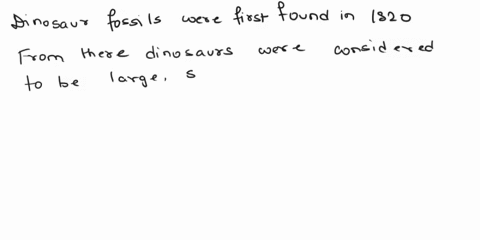 Dinosaur fossils were first found in 1820
From there dinosaurs were considered
to be large, s